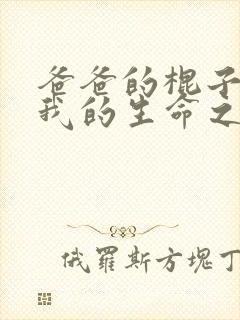 爸爸的棍子
我的生命之
俄羅斯方塊丁